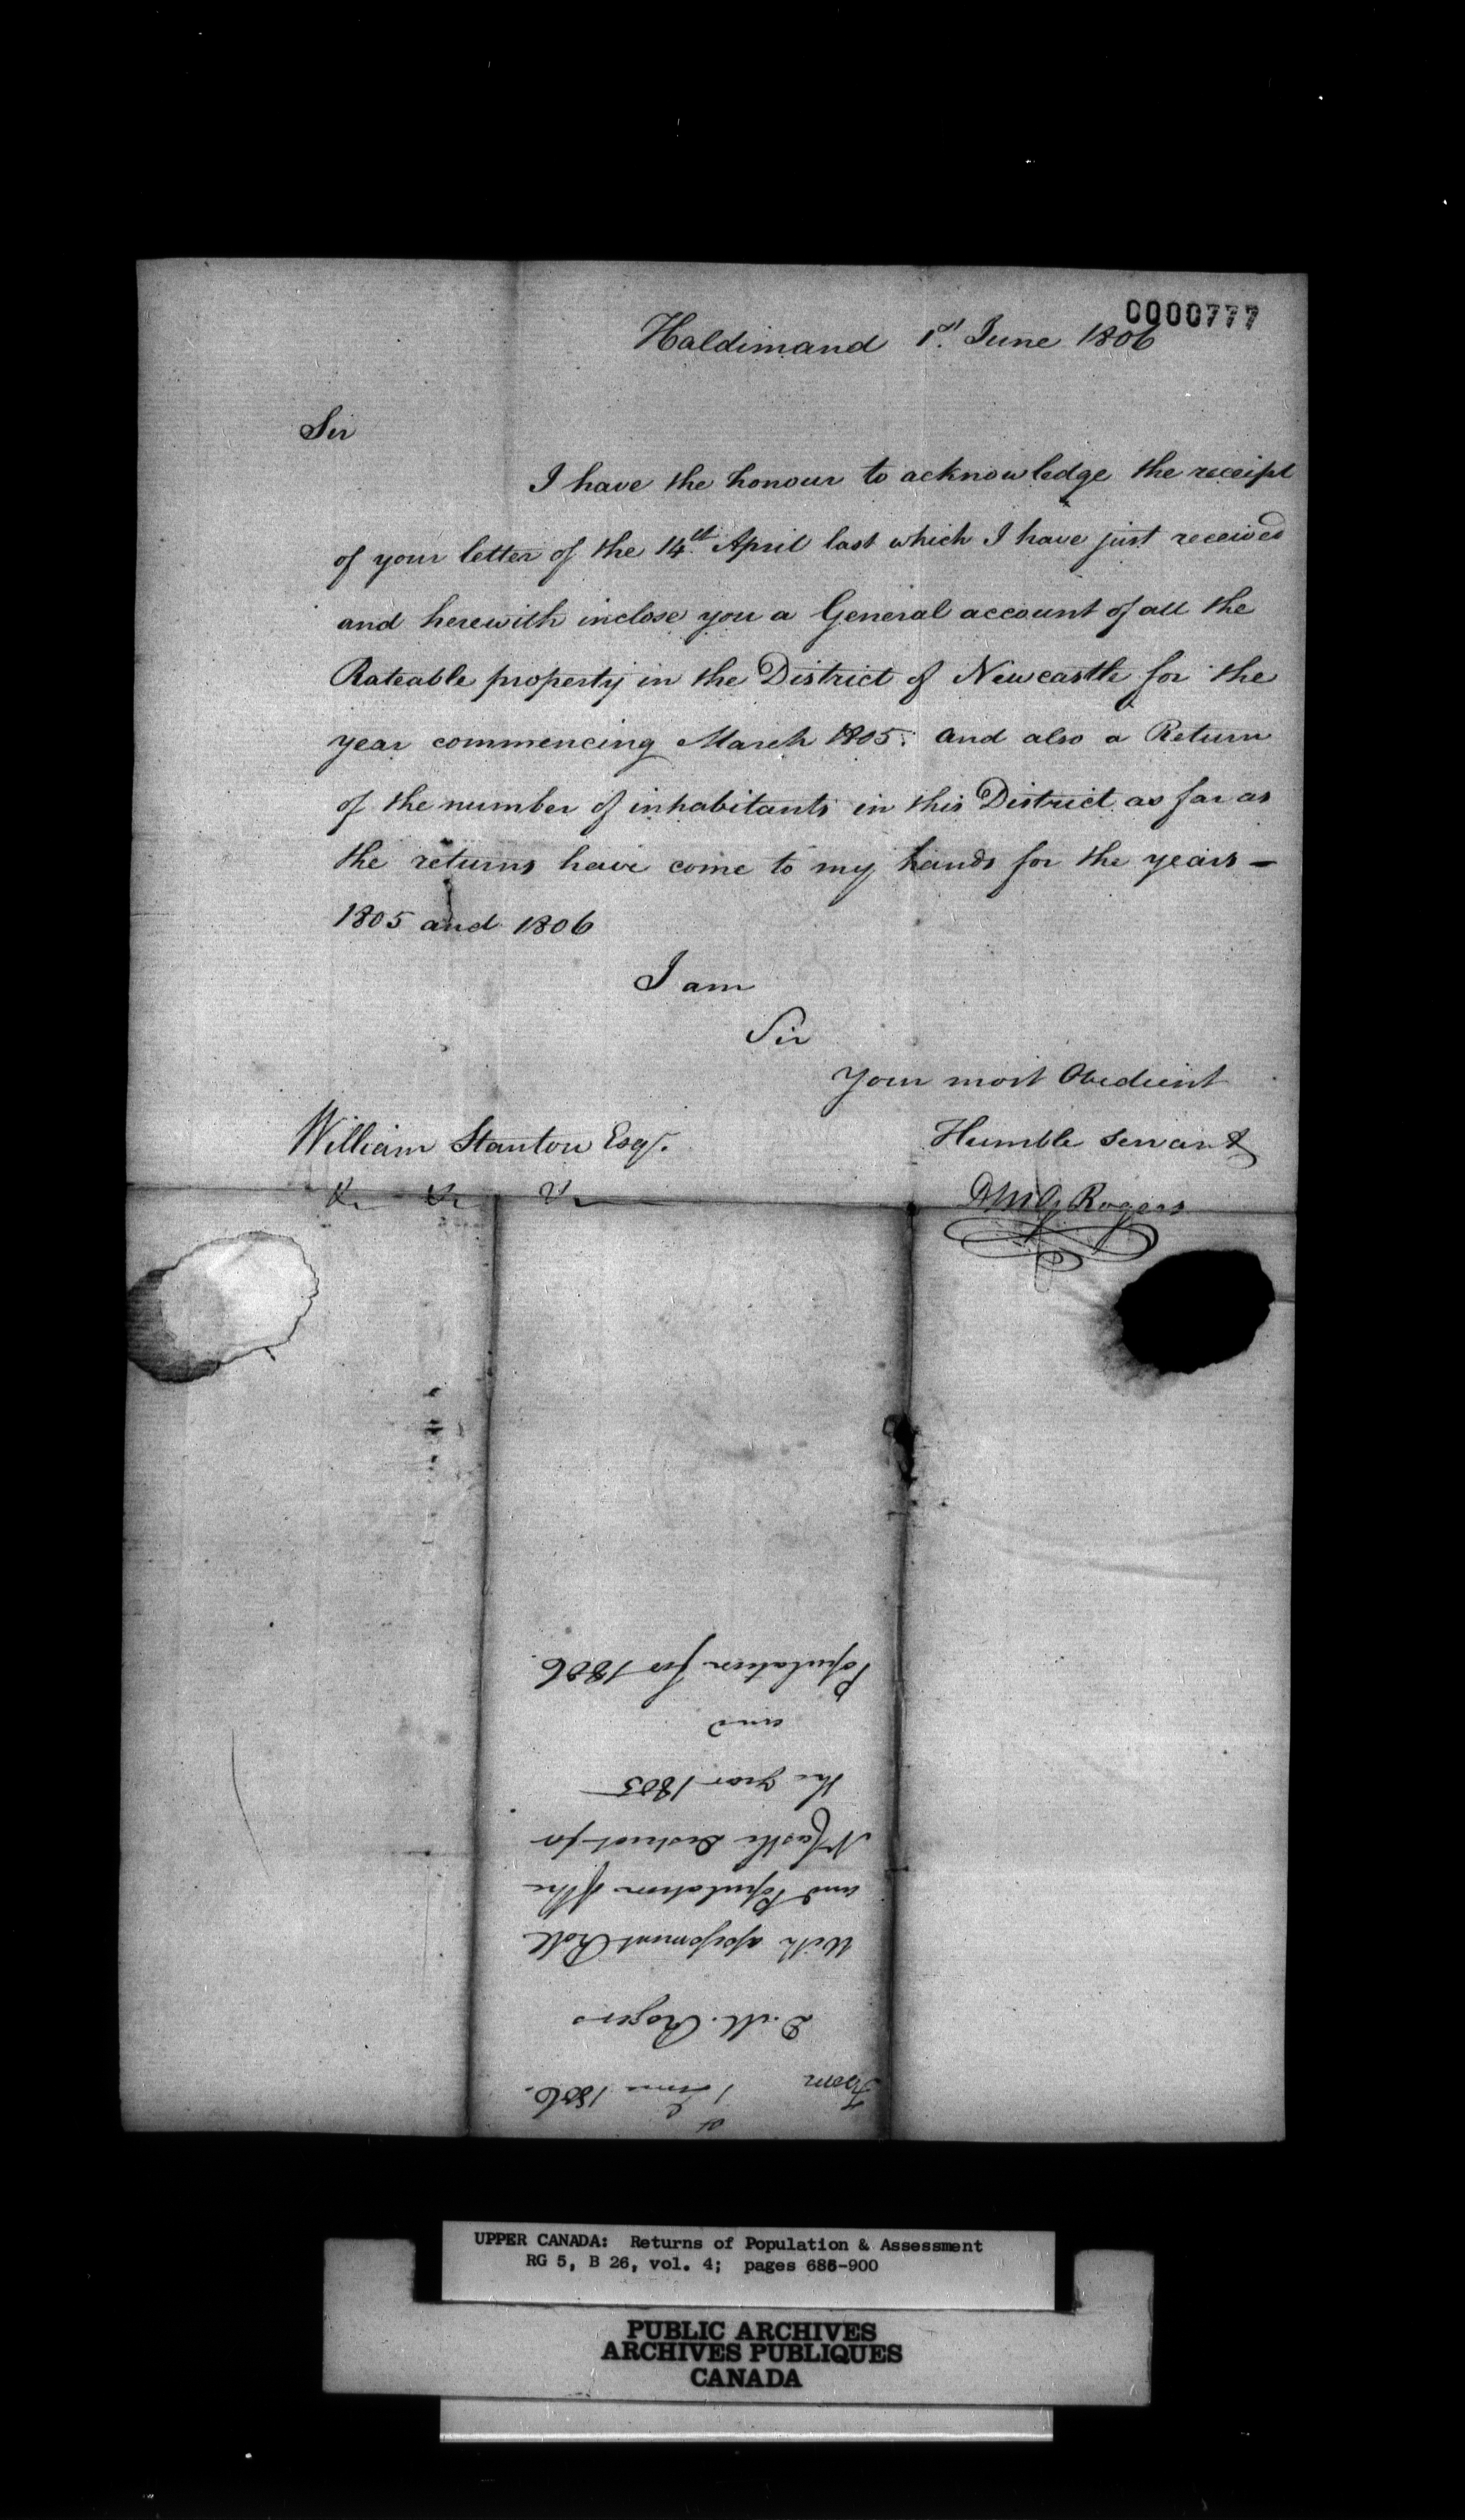 0000777
Haldimand 1st June 1806
Sir
I have the honour to acknowledge the receipt
of your letter of the 14th April last which I have just received
and herewith inclose you a General account of all the
Rateable property in the District of Newcastle for the
year commencing March 1805. and also a Return
of the number of inhabitants in this District as far as
the returns have come to my hands for the years –
1805 and 1806
I am
Sir
Your most Obedient
Humble Servant
William Stanton Esqr.
&c &c &c
D McG Rogers
From 1st June 1806.
D. M. Rogers
With assessment Roll
and Population of the
NCastle District for
the year 1805
and
Population for 1806.
UPPER CANADA: Returns of Population & Assessment
RG 5, B 26, vol. 4; pages 686-900
PUBLIC ARCHIVES
ARCHIVES PUBLIQUES
CANADA